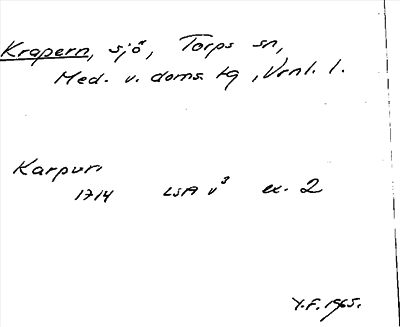 Krapern, sjö, Torps sn,
Med. v. doms. tg, Vrnl. l.
Karpurn
1714 LSA v³ ex. 2
Y.F. 1965.